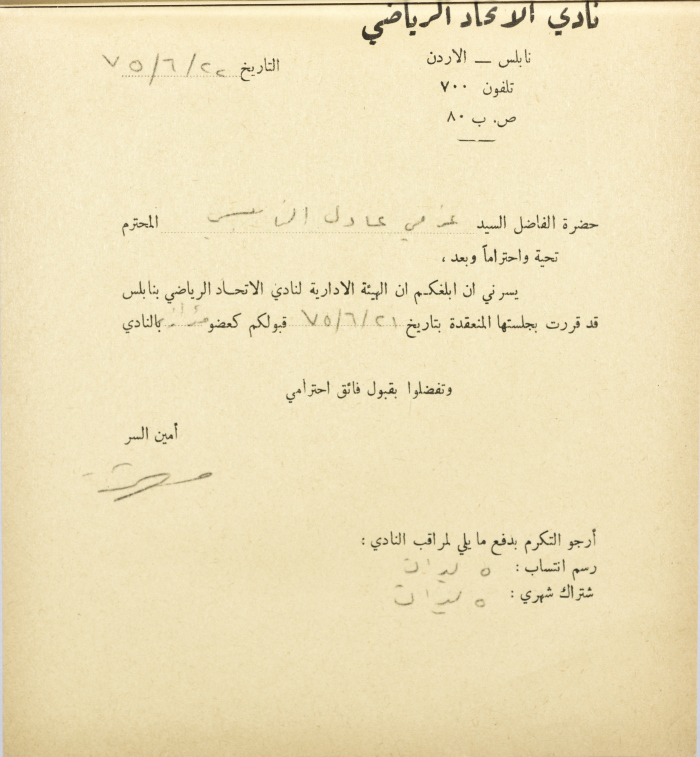 نادي الاتحاد الرياضي
نابلس — الاردن
تلفون ٧٠٠
ص. ب ٨٠
التاريخ ٧٥/٦/٢٢
حضرة الفاضل السيد عزمي عادل المحترم
تحية واحتراماً وبعد ،
يسرني ان ابلغكم ان الهيئة الادارية لنادي الاتحاد الرياضي بنابلس
قد قررت بجلستها المنعقدة بتاريخ ٧٥/٦/٢١ قبولكم كعضو مؤازر بالنادي
وتفضلوا بقبول فائق احترامي
أمين السر
أرجو التكرم بدفع ما يلي لمراقب النادي :
رسم انتساب : ٥ ليرات
شتراك شهري : ٥ ليرات